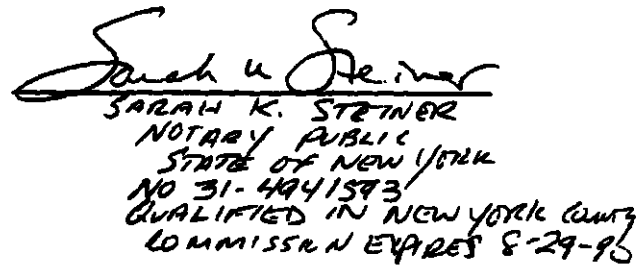 Sarah K Steiner
SARAH K. STEINER
NOTARY PUBLIC
STATE OF NEW YORK
NO 31-4941593
QUALIFIED IN NEW YORK COUNTY
COMMISSION EXPIRES 8-29-